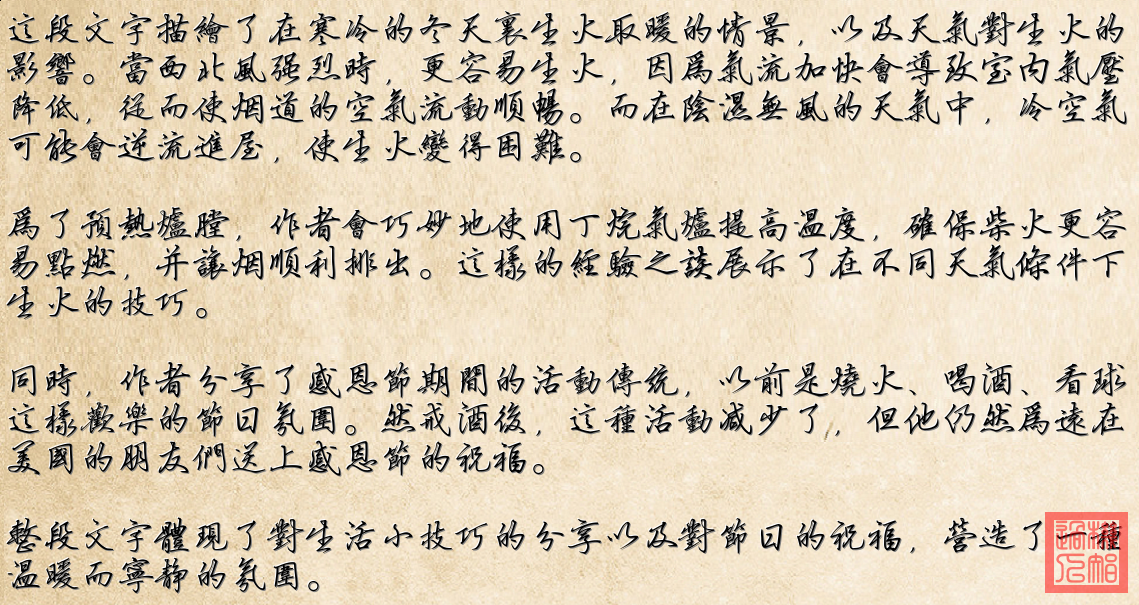 這段文字描繪了在寒冷的冬天裏生火取暖的情景，以及天氣對生火的
影響。當西北風强烈時，更容易生火，因爲氣流加快會導致室内氣壓
降低，從而使烟道的空氣流動順暢。而在陰濕無風的天氣中，冷空氣
可能會逆流進屋，使生火變得困難。
爲了預熱爐膛，作者會巧妙地使用丁烷氣爐提高温度，確保柴火更容
易點燃，并讓烟順利排出。這樣的經驗之談展示了在不同天氣條件下
生火的技巧。
同時，作者分享了感恩節期間的活動傳統，以前是燒火、喝酒、看球
這樣歡樂的節日氛圍。然戒酒後，這種活動减少了，但他仍然爲遠在
美國的朋友們送上感恩節的祝福。
整段文字體現了對生活小技巧的分享以及對節日的祝福，營造了一種
温暖而寧静的氛圍。